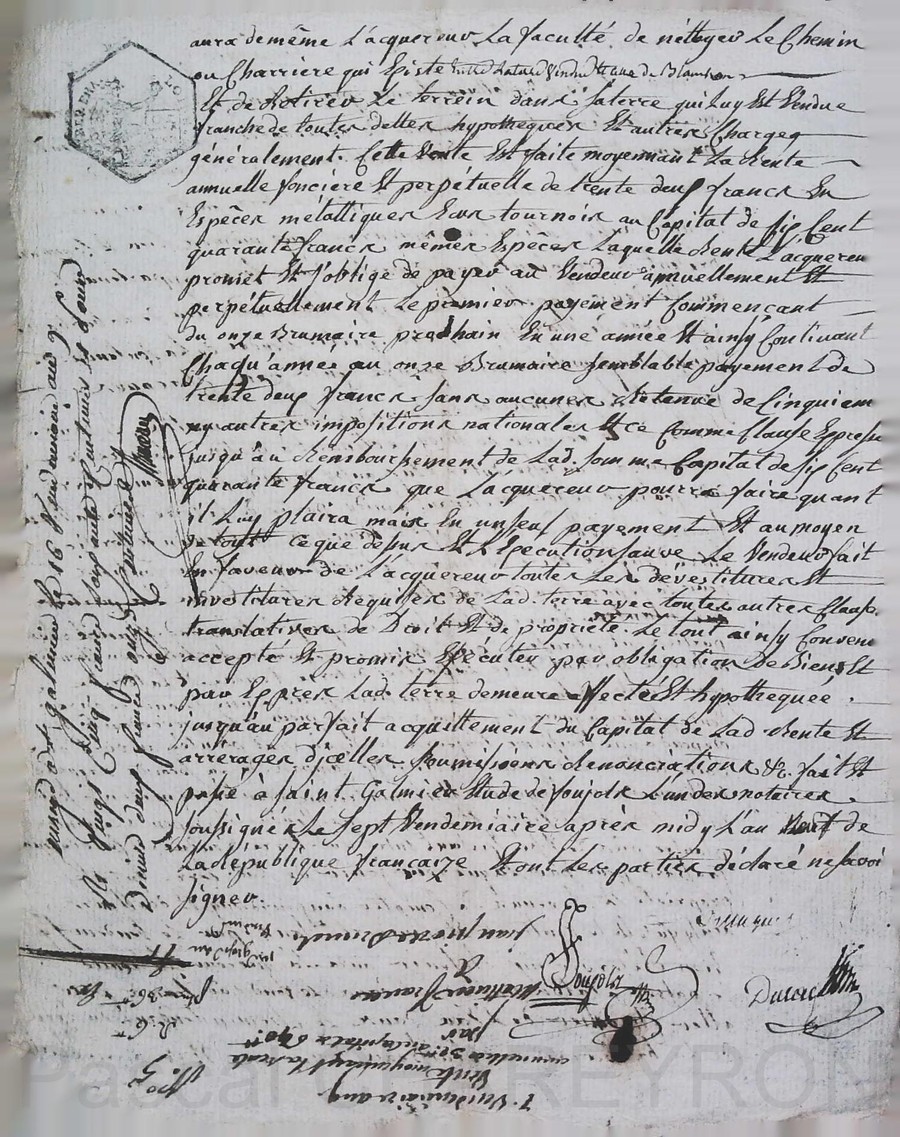 aura de même L'acquereur La faculté de néttoyer Le Chemin
ou Charriere qui Existe Entre Lature Vendue et
Et de Retirer Le terrein dans saterre qui Luy Est Vendue
franche de toutes dettes hypotheques Et autres Charges
généralement. Cette Vente Est faite moyennant La Rente
annuelle fonciere Et perpétuelle de trente deux francs En
Espêces métalliques Ecus tournois au Capital de six Cent
quarante francs mêmes Espêces Laquelle Rente L'acquereur
promet Et s'oblige de payer au Vendeur annuellement Et
perpétuellement Le premier payement Commençant
du onze Brumaire prochain En une année Et ainsy Continuant
Chaqu'année au onze Brumaire semblable payement de
trente deux francs sans aucunes Retenue de Cinquiem
ny autres impositions nationales Et ce Comme Clause Expresse
jusqu'au Remboursement de Lad. somme Capital de six Cent
quarante francs que Lacquereur pourra faire quant
il Luy plaira mais En un seul payement Et au moyen
de tout Ce que dessus Et L'Execution sauve Le Vendeur fait
En faveur de L'acquereur toutes Les dévestitures Et
investitures Requises de Lad. terre avec toutes autres Clauses
translatives de Droit Et de propriété. Le tout ainsy Convenu
accepté Et promis Exécuter par obligation de Biens Et
par Exprès Lad. terre demeure affectée Et hypothequée
jusqu'au parfait acquittement du Capital de Lad. Rente Et
arrerages d'icelles soumissions Renonciations &c. fait Et
passé à saint Galmier Etude de Soujols L'un des notaires
soussignés Le sept Vendemiaire après midy L'an neuf de
La République française Et ont Les parties déclaré ne savoir
signer
Soujols
a St galmier Le 16 Vendemiaire an 9
Vingt Cinq francs
deux francs onze Centimes
Vente moyennant la rente
7. Vendémiaire an 9
Pascal CHAREYRON